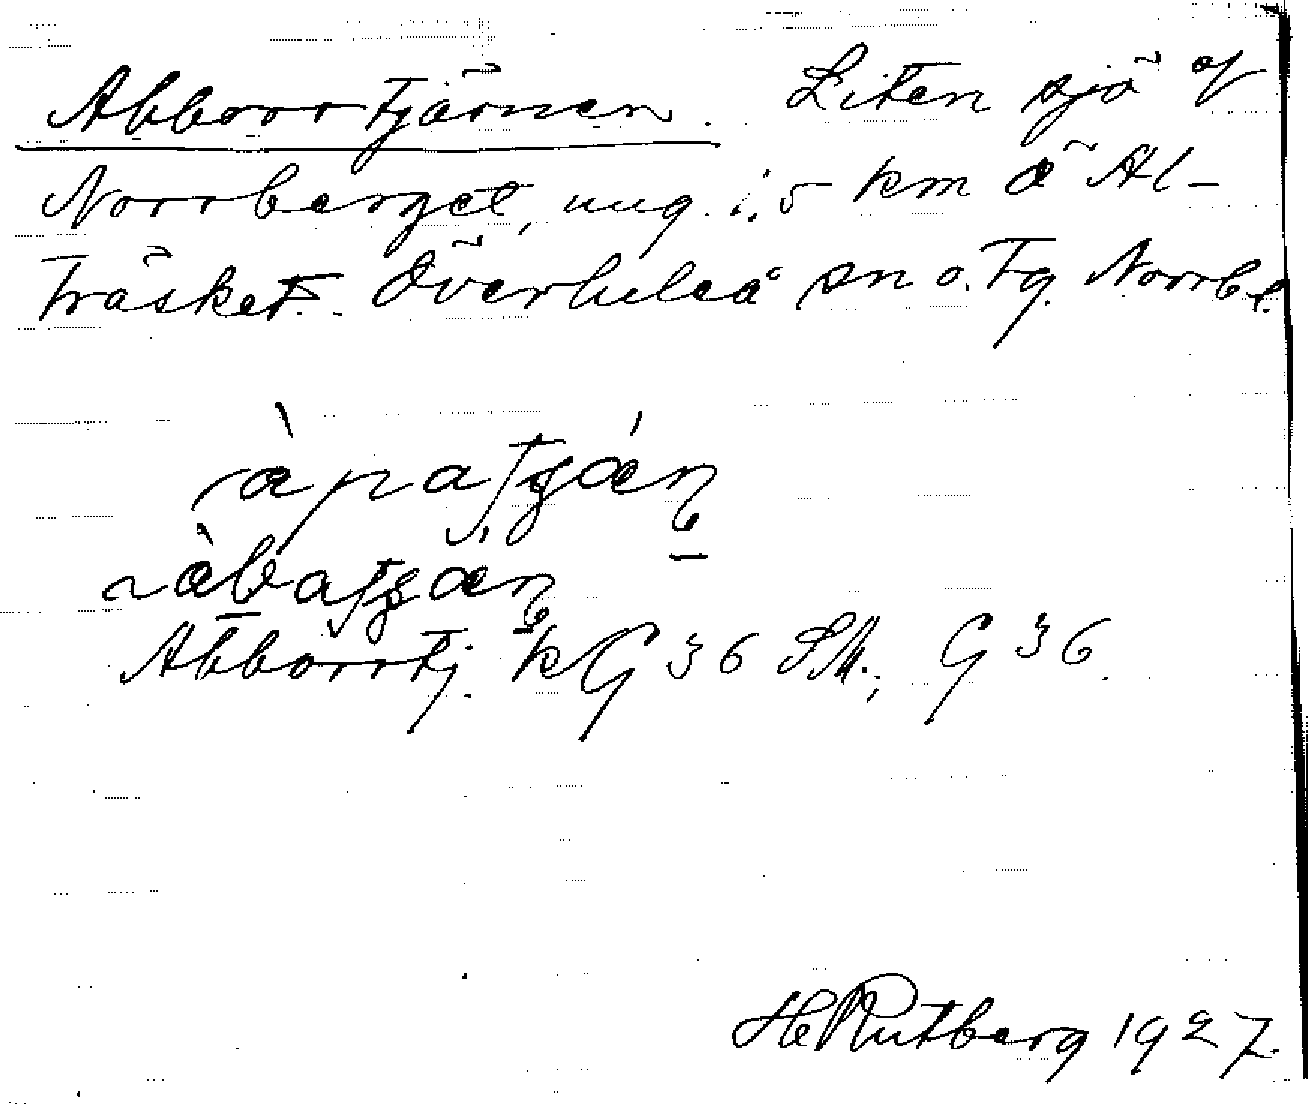 Abborrtjärnen. Liten sjö v
Norrberget, ung. 1,5 km ö Al-
träsket. Överluleå sn o. tg. Norrb l.
Abborrtj. kG 36 SM., G 36.
H Rutberg 1927.